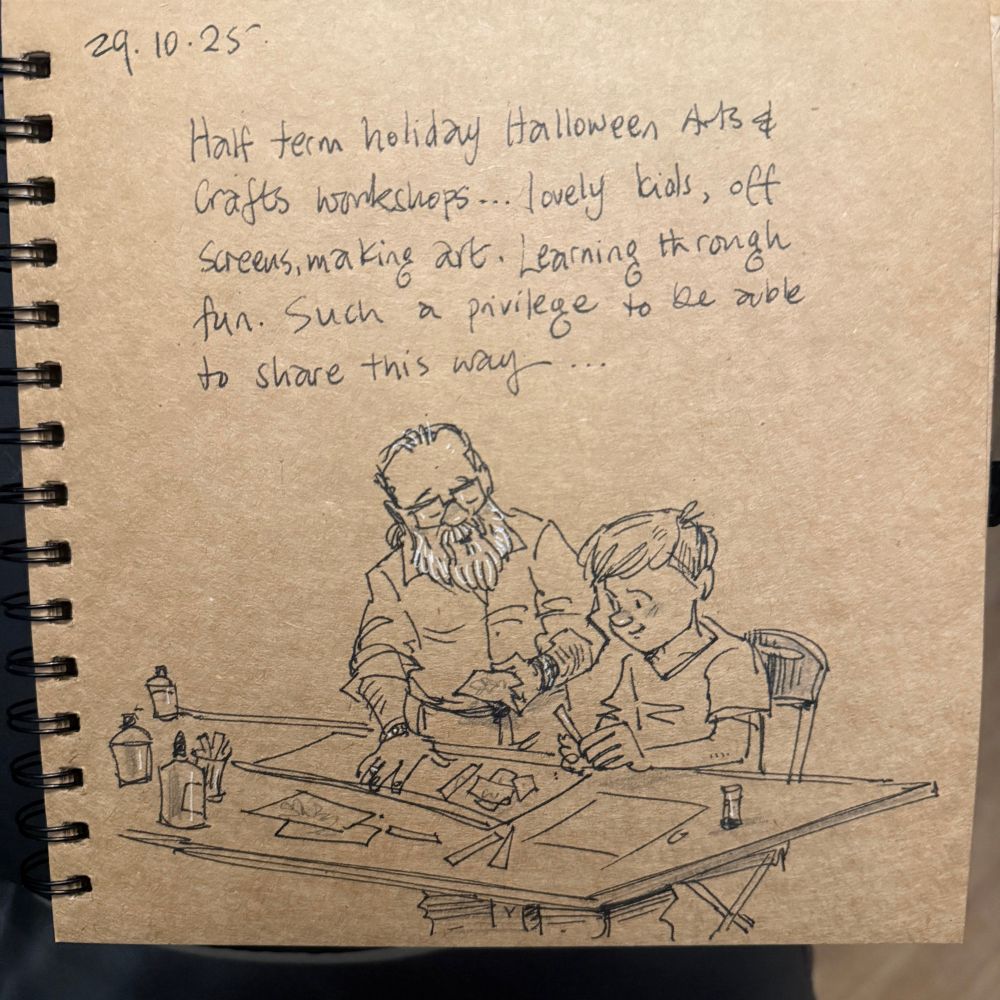 29.10.25
Half term holiday Halloween Arts &
Crafts workshops... lovely kids, off
screens, making art. Learning through
fun. Such a privilege to be able
to share this way...